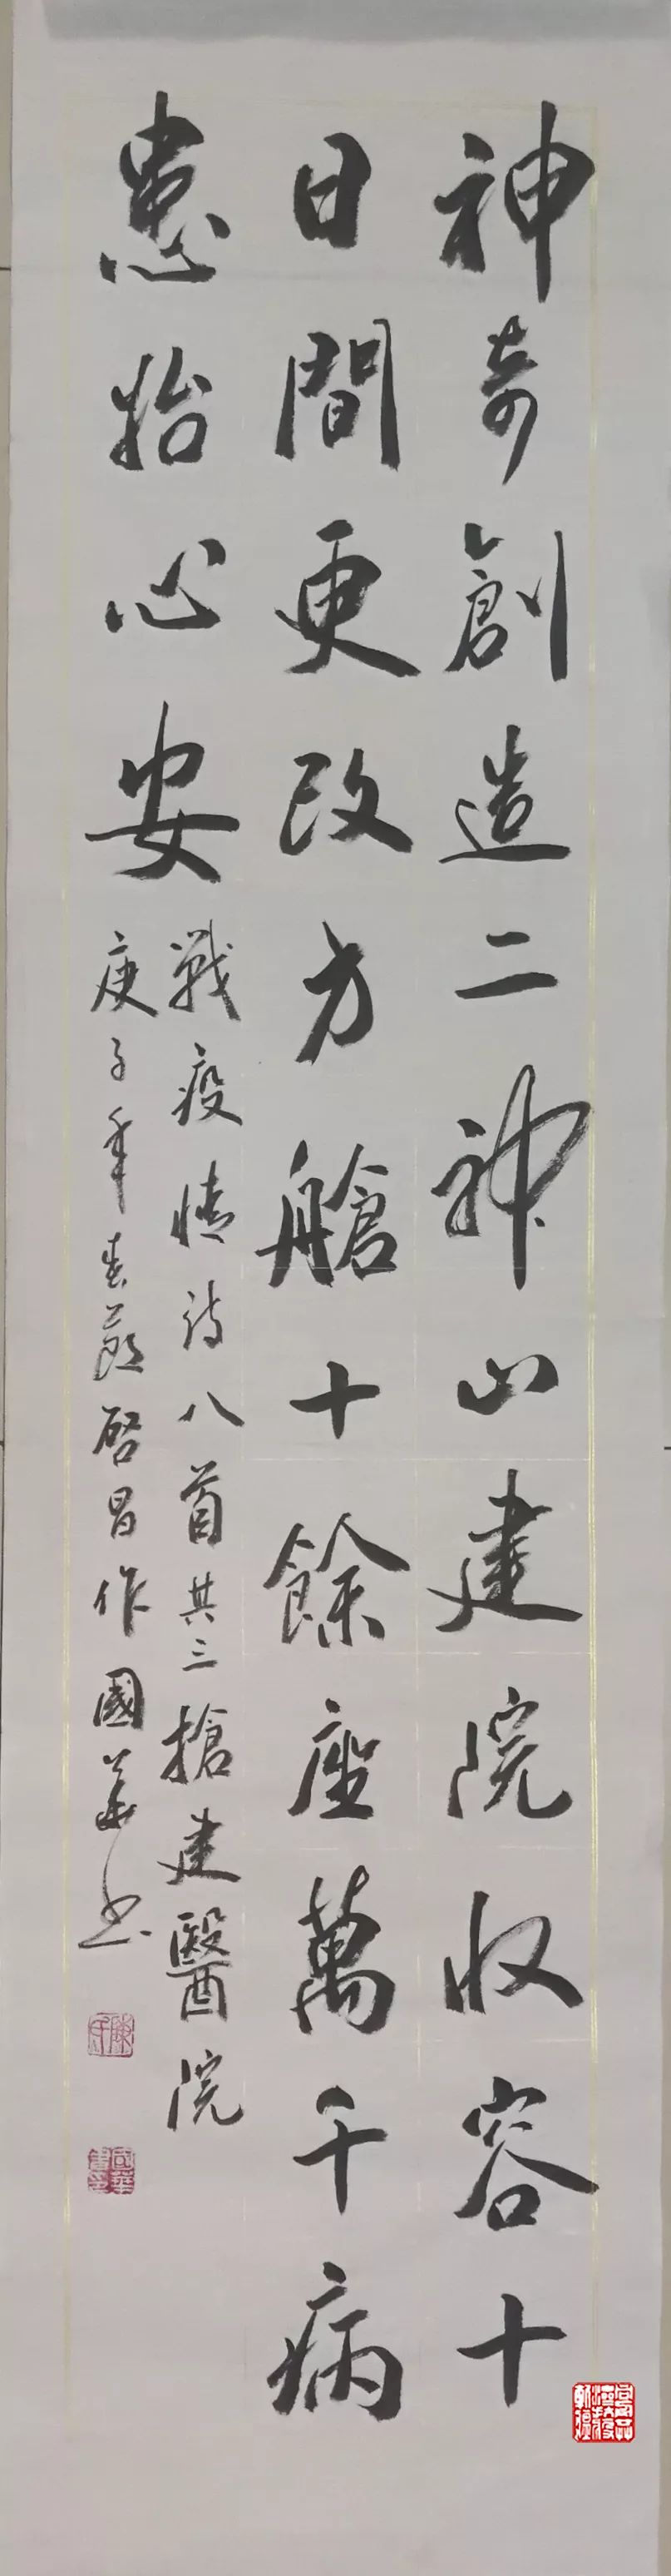 神奇創造二神山建院收容十
日間更改方艙十餘座萬千病
患始心安
戰疫情詩八首其三搶建醫院
庚子年春蘇啓昌作國華书